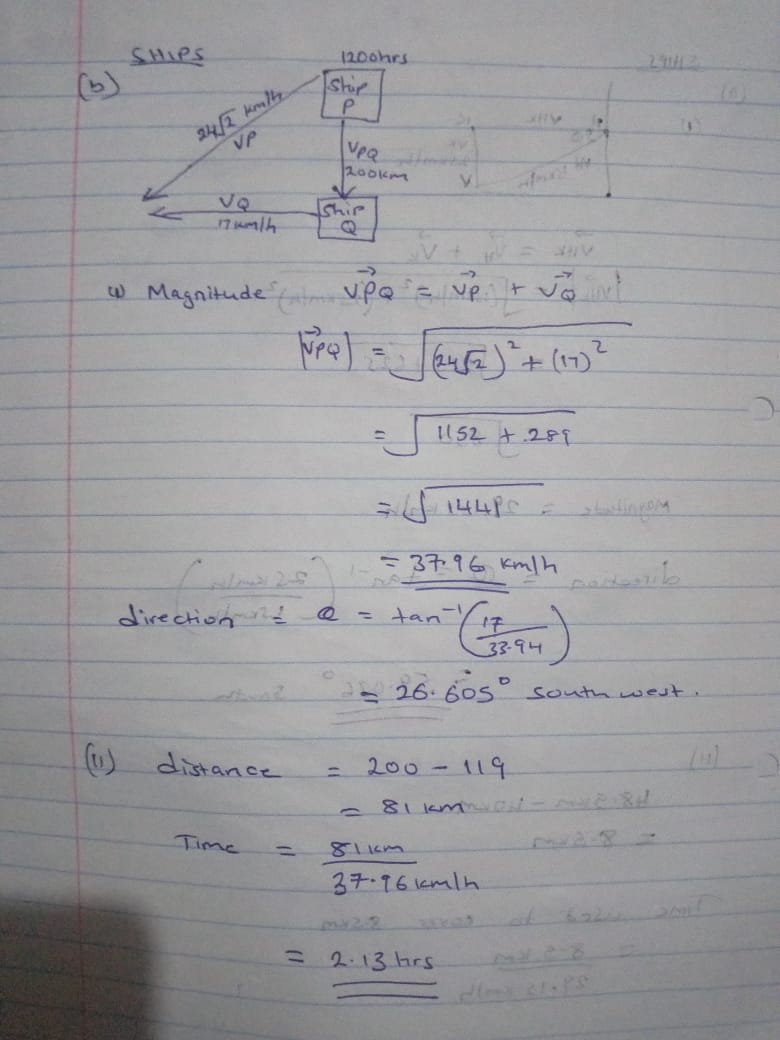 SHIPS
1200hrs
(b)
Ship
P
24√2 km/h
VP
VPQ
200km
VQ
17 km/h
Ship
Q
(i) Magnitude VPQ = VP + VQ
|VPQ| = √(24√2)² + (17)²
= √1152 + 289
= 37.96 km/h
direction = θ = tan⁻¹(17/33.94)
= 26.605° South west.
(ii) distance = 200 - 119
= 81 km
Time = 81km
37.96 km/h
= 2.13 hrs